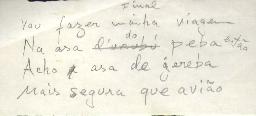 Final
Vou fazer minha viagem
Na asa d'urubú do peba
Acho asa de gereba
Mais segura que avião